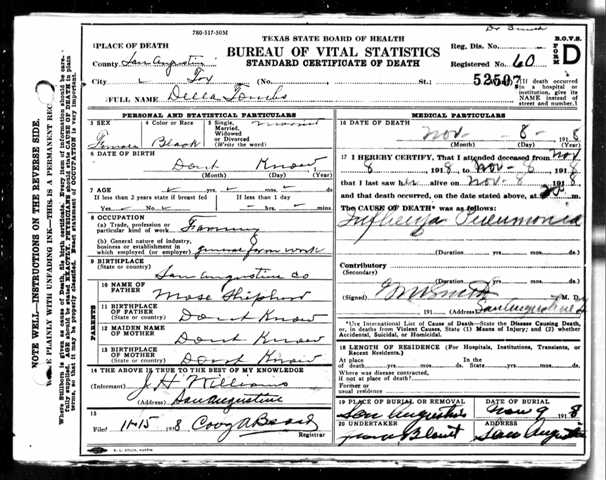 780-517-50M
TEXAS STATE BOARD OF HEALTH
BUREAU OF VITAL STATISTICS
STANDARD CERTIFICATE OF DEATH
Reg. Dis. No.
Registered No. 60
B.O.V.S.
FORM
D
PLACE OF DEATH
County San Augustine
City (No. St.;
52507
(If death occurred in a hospital or institution, give its NAME instead of street and number.)
FULL NAME Della
PERSONAL AND STATISTICAL PARTICULARS
3 SEX
Female
4 Color or Race
Black
5 Single, Married, Widowed or Divorced (Write the word)
Married
6 DATE OF BIRTH
Dont Know
(Month) (Day) (Year)
7 AGE
If less than 2 years state if breast fed
If less than 1 day
Yes No hrs. min.
8 OCCUPATION
(a) Trade, profession or particular kind of work
(b) General nature of industry, business or establishment in which employed (or employer) general farm work
9 BIRTHPLACE
(State or country)
San Augustine Co
PARENTS
10 NAME OF FATHER
Mose Shepherd
11 BIRTHPLACE OF FATHER
(State or country)
Dont Know
12 MAIDEN NAME OF MOTHER
Dont Know
13 BIRTHPLACE OF MOTHER
(State or country)
Dont Know
14 THE ABOVE IS TRUE TO THE BEST OF MY KNOWLEDGE
(Informant) J.H. Williams
(Address) San Augustine
15
Filed 11-15 1918
Registrar
MEDICAL PARTICULARS
16 DATE OF DEATH
Nov. 8- 1918
(Month) (Day) (Year)
17 I HEREBY CERTIFY, That I attended deceased from Nov
8 1918 to Nov-8 1918
that I last saw her alive on Nov-8 1918
and that death occurred, on the date stated above, at m.
The CAUSE OF DEATH* was as follows:
Influenza Pneumonia
(Duration yrs. mos. ds.
Contributory
(Secondary)
(Duration yrs. mos. ds.
(Signed) M. D.
191 (Address) San Augustine
*Use International List of Cause of Death—State the Disease Causing Death, or, in deaths from Violent Causes, State (1) Means of Injury; and (2) whether Accidental, Suicidal, or Homicidal.
18 LENGTH OF RESIDENCE (For Hospitals, Institutions, Transients, or Recent Residents.)
At place of death yrs. mos. ds. In the State yrs. mos. ds.
Where was disease contracted, if not at place of death?
Former or usual residence
19 PLACE OF BURIAL OR REMOVAL
San Augustine
DATE OF BURIAL
Nov 9 1918
20 UNDERTAKER
Blount
ADDRESS
San Augustine
NOTE WELL—INSTRUCTIONS ON THE REVERSE SIDE.
PLAINLY WITH UNFADING INK—THIS IS A PERMANENT REC